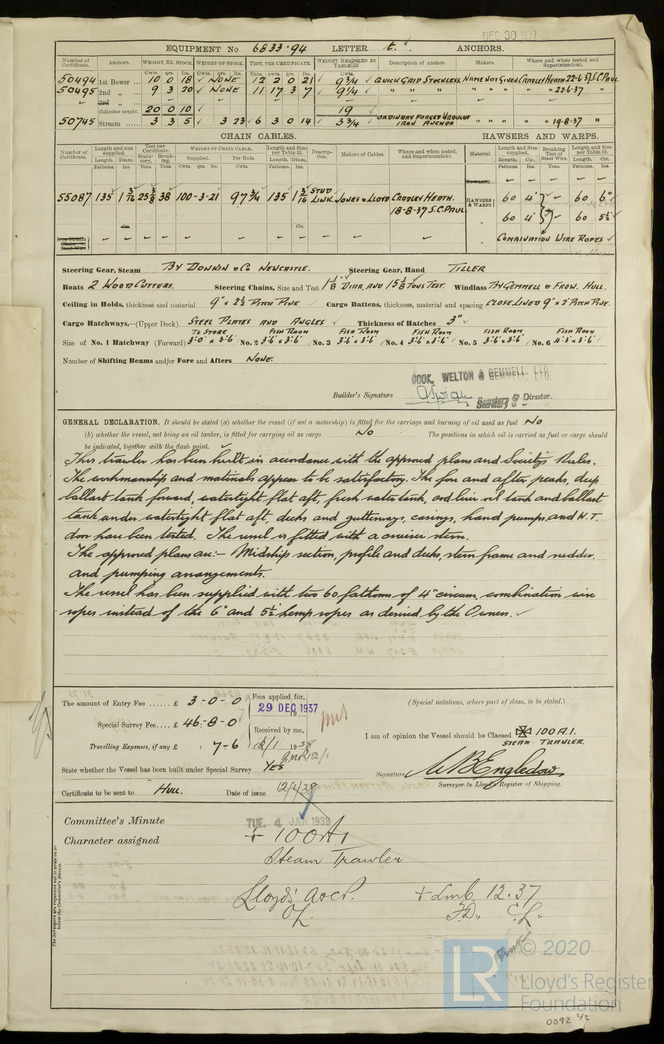 DEC 30 1937
EQUIPMENT No 6833.94 LETTER t. ANCHORS.
Number of Certificate. Anchors. WEIGHT, EX. STOCK. WEIGHT OF STOCK. TEST, PER CERTIFICATE. WEIGHT REQUIRED BY TABLE 31. Description of Anchor. Makers. Where and when tested and Superintendent.
Cwts. qrs. lbs. Cwts. qrs. lbs. Tons. cwts. qrs. lbs. Cwts.
50494 1st Bower 10 0 18 NONE 12 2 0 21 9¾ QUICK GRIP STOCKLESS NAME NOT GIVEN CRADLEY HEATH 22-6-37 S.C. PAUL
50495 2nd „ 9 3 20 NONE 11 17 3 7 9¼ " " " " " 22-6-37 "
3rd „
Collective weight. 20 0 10 19
50745 Stream 3 3 5 3 23 6 3 0 14 3¾ ORDINARY FORGED WROUGHT IRON ANCHOR " " " " 19-8-37 "
CHAIN CABLES. HAWSERS AND WARPS.
Number of Certificate. Length and size supplied. Test per Certificate. WEIGHT OF CHAIN CABLE. Length and Size per Table 31. Description. Makers of Cables. Where and when tested, and Superintendent. Material Length and size supplied. Breaking Test of Steel Wire. Length and Size per Table 31.
Fathoms. Diam. Ins. Statutory. Tons. Breaking. Tons. Supplied. Cwts. Per Rule. Cwts. Length. Fathoms. Diam. Ins. Length. Fathoms. Cir. Ins. Tons. Length. Fathoms. Cir. Ins.
55087 135 1 3/16 25 3/8 38 100-3-21 97¾ 135 1 3/16 STUD LINK JONES & LLOYD CRADLEY HEATH. 18-8-37 S.C. PAUL HAWSERS & WARPS 60 4" 60 6"
60 4" 60 5½
COMBINATION WIRE ROPES
Steering Gear, Steam BY DONKIN & CO NEWCASTLE. Steering Gear, Hand TILLER
Boats 2 WOOD CUTTERS. Steering Chains, Size and Test 1 1/8 DIAR. AND 15 1/8 TONS TEST. Windlass BY GEMMELL & FROW. HULL.
Ceiling in Holds, thickness and material 9" × 2½ PITCH PINE Cargo Battens, thickness, material and spacing CLOSE LINED 9" × 2" PITCH PINE.
Cargo Hatchways.—(Upper Deck) STEEL PLATES AND ANGLES Thickness of Hatches 3"
TO STORE FISH ROOM FISH ROOM FISH ROOM FISH ROOM FISH ROOM
Size of No. 1 Hatchway (Forward) 3'0" × 3'6" No. 2 3'6" × 3'6" No. 3 3'6" × 3'6" No. 4 3'6" × 3'6" No. 5 3'6" × 3'6" No. 6
Number of Shifting Beams and/or Fore and Afters NONE.
COOK, WELTON & GEMMELL LTD
Builder's Signature Secretary & Director.
GENERAL DECLARATION. It should be stated (a) whether the vessel (if not a motorship) is fitted for the carriage and burning of oil used as fuel No
(b) whether the vessel, not being an oil tanker, is fitted for carrying oil as cargo No The positions in which oil is carried as fuel or cargo should
be indicated, together with the flash point.
This trawler has been built in accordance with the approved plans and Society's Rules.
The workmanship and materials appear to be satisfactory. The fore and after peaks, deep
ballast tank forward, watertight flat aft, fresh water tank, cod liver oil tank and ballast
tank under watertight flat aft, decks and gutterways, casings, hand pumps, and W.T.
door have been tested. The vessel is fitted with a cruiser stern.
The approved plans are:- Midship section, profile and decks, stern frame and rudder,
and pumping arrangements.
The vessel has been supplied with two 60 fathoms of 4" circum. combination wire
ropes instead of the 6" and 5½ hemp ropes as desired by the Owners.
The amount of Entry Fee £ 3-0-0 Fees applied for,
29 DEC 1937
Special Survey Fee £ 46-8-0 Received by me,
Travelling Expenses, if any £ : 7-6 12/1 1938
(Special notations, where part of class, to be stated.)
I am of opinion the Vessel should be Classed ✠ 100 A.1.
STEAM TRAWLER.
State whether the Vessel has been built under Special Survey Yes
Signature W B Engledow
Surveyor to Lloyd's Register of Shipping.
Certificate to be sent to HULL. Date of issue 12/1/38
Committee's Minute TUE. 4 JAN 1938
Character assigned + 100A1
Steam Trawler
Lloyd's A&CP. + Lmb 12.37
OL. F.D., C.L.
The Surveyors are requested not to write on or below the Committee's Minute.
© 2020
LR Lloyd's Register
Foundation
0092 2/2